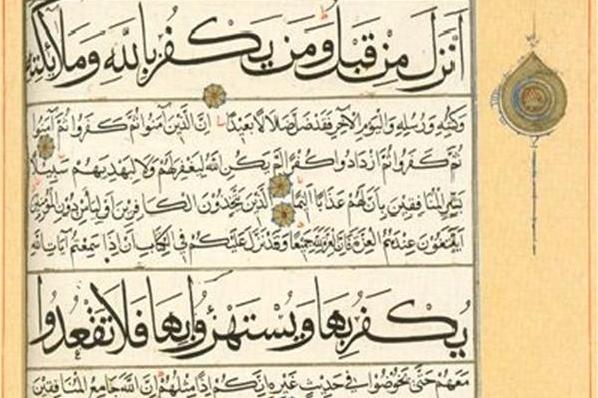 أَنْزَلَ مِنْ قَبْلُ وَمَنْ يَكْفُرْ بِاللَّهِ وَمَلَائِكَتِهِ
وَكُتُبِهِ وَرُسُلِهِ وَالْيَوْمِ الْآخِرِ فَقَدْ ضَلَّ ضَلَالًا بَعِيدًا إِنَّ الَّذِينَ آمَنُوا ثُمَّ كَفَرُوا ثُمَّ آمَنُوا
ثُمَّ كَفَرُوا ثُمَّ ازْدَادُوا كُفْرًا لَمْ يَكُنِ اللَّهُ لِيَغْفِرَ لَهُمْ وَلَا لِيَهْدِيَهُمْ سَبِيلًا
بَشِّرِ الْمُنَافِقِينَ بِأَنَّ لَهُمْ عَذَابًا أَلِيمًا الَّذِينَ يَتَّخِذُونَ الْكَافِرِينَ أَوْلِيَاءَ مِنْ دُونِ الْمُؤْمِنِينَ
أَيَبْتَغُونَ عِنْدَهُمُ الْعِزَّةَ فَإِنَّ الْعِزَّةَ لِلَّهِ جَمِيعًا وَقَدْ نَزَّلَ عَلَيْكُمْ فِي الْكِتَابِ أَنْ إِذَا سَمِعْتُمْ آيَاتِ اللَّهِ
يُكْفَرُ بِهَا وَيُسْتَهْزَأُ بِهَا فَلَا تَقْعُدُوا
مَعَهُمْ حَتَّى يَخُوضُوا فِي حَدِيثٍ غَيْرِهِ إِنَّكُمْ إِذًا مِثْلُهُمْ إِنَّ اللَّهَ جَامِعُ الْمُنَافِقِينَ